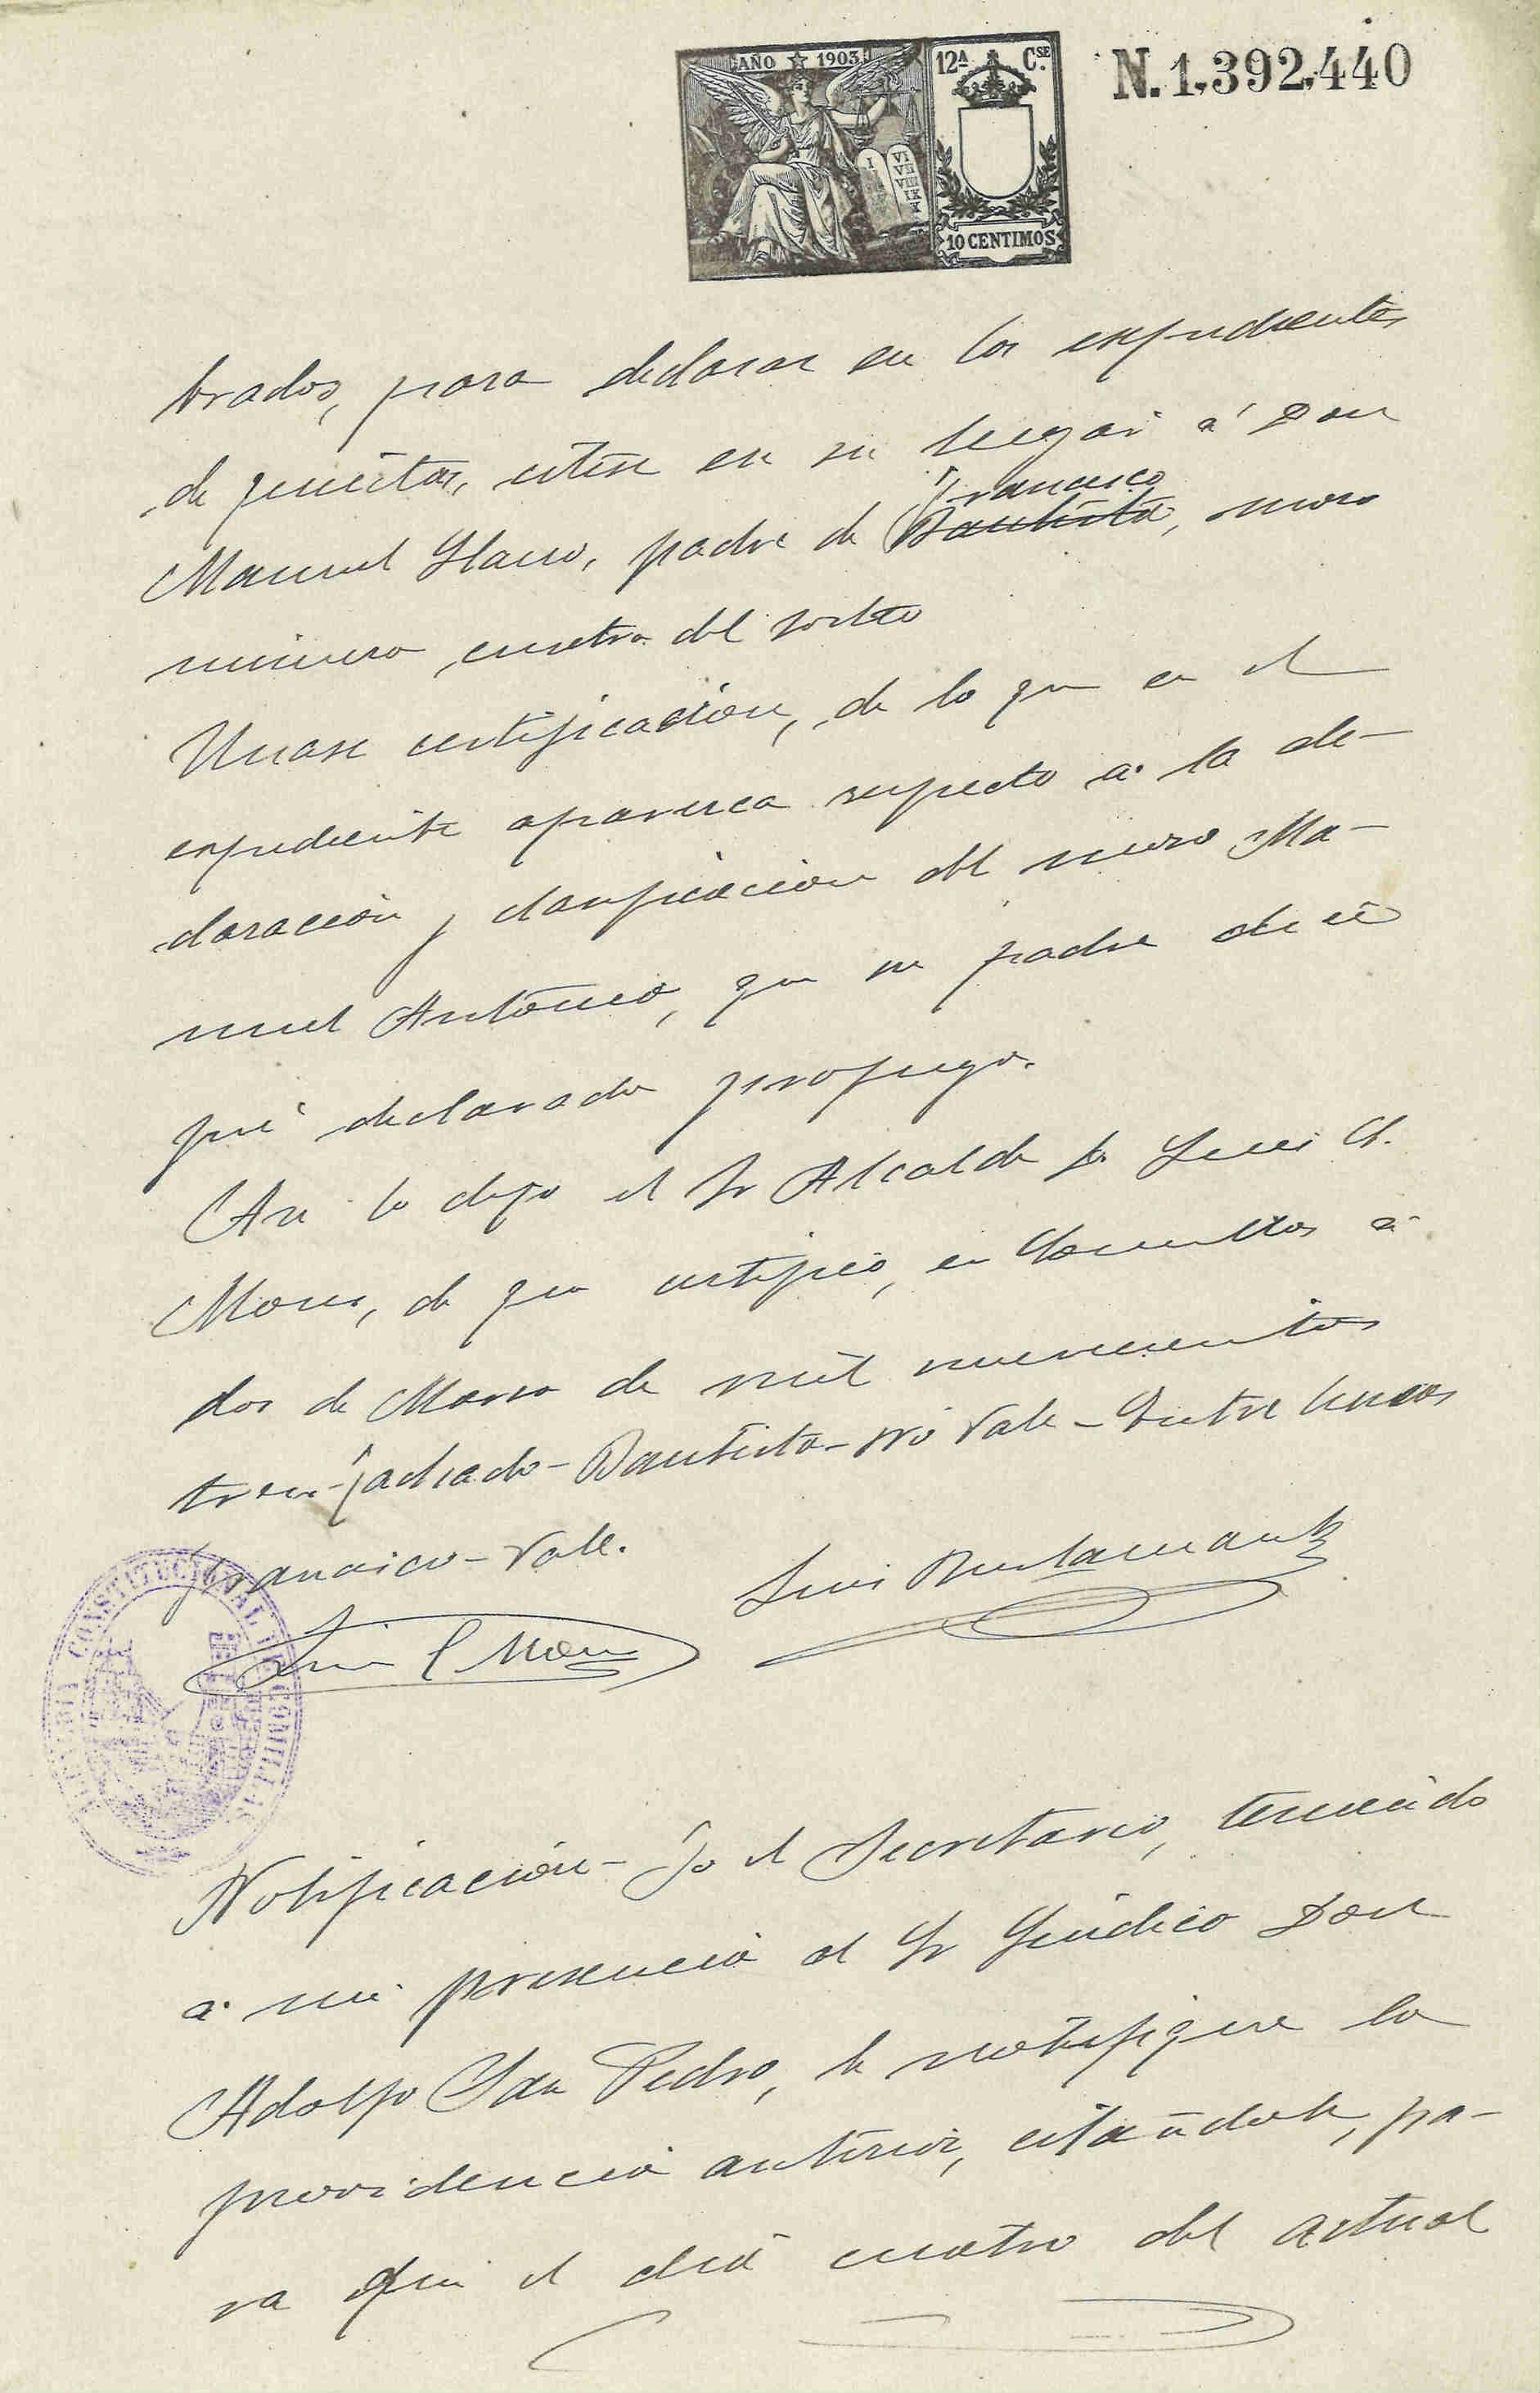 AÑO 1903
12ª Cse.
I VI VII VIII IX X
10 CENTIMOS
N.1,392,440
brados, para declarar en los expedientes
de quintas, citese en su lugar á Don
Francisco
Manuel Llano, padre de Bautista, mozo
número cuatro del sorteo
Unase certificación, de lo que en el
expediente aparezca respecto a la de-
claración y clasificacion del mozo Ma-
nuel Antonio, que su padre dice
fué declarado profugo.
Asi lo dijo el Sr Alcalde D. Luis C.
Mone, de que certifico, en Comillas á
dos de Marzo de mil novecientos
tres. Tachado - Bautista - No Vale - Entre lineas
Francisco - Vale.
Luis Bustamante
Luis C Mone
CONSTITUCIONAL DE COMILLAS
Notificación - Yo el Secretario, teniendo
a mi presencia al Sr Síndico Don
Adolfo San Pedro, le notifique la
providencia anterior, citandole, pa-
ra que el dia cuatro del actual